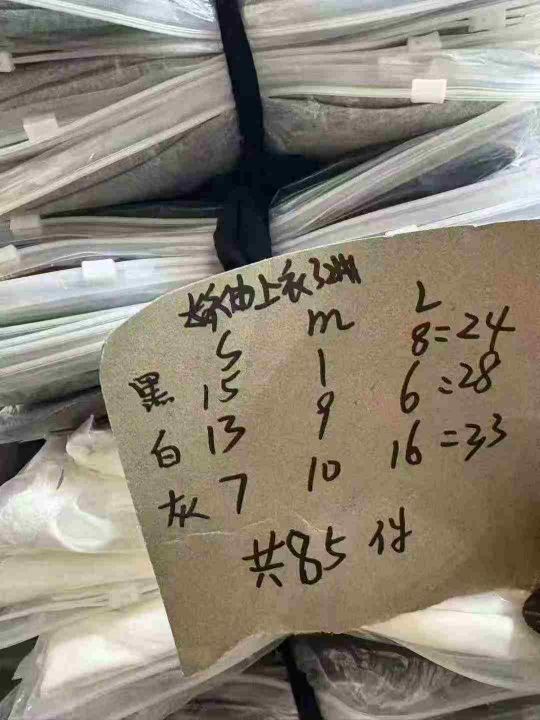 长袖上衣
S m L
黑 15 1 8=24
白 13 9 6=28
灰 7 10 16=33
共85件